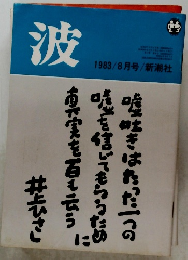 波
1983/6月号/新潮社
嘘吐きはたった一つの
嘘を信じてもらうため
に
真実を百も云う
井上ひさし